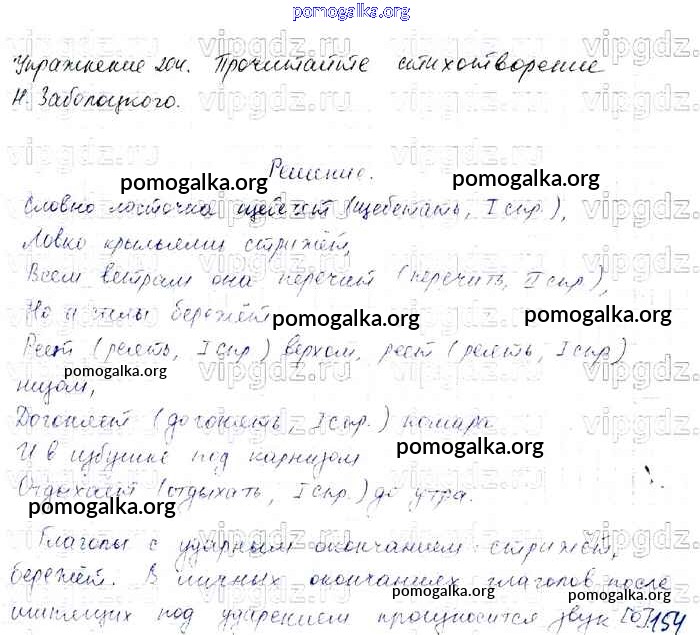 pomogalka.org
Упражнение 204. Прочитайте стихотворение
Н. Заболоцкого.
Решение.
Словно ласточка щебечет (щебетать, I спр.),
Ловко крыльями стрижёт,
Всем ветрам она перечит (перечить, II спр.),
Но и силы бережёт.
Реет (реять, I спр.) верхом, реет (реять, I спр.)
низом,
Догоняет (догонять, I спр.) комара
И в избушке под карнизом
Отдыхает (отдыхать, I спр.) до утра.
Глаголы с ударным окончанием: стрижёт,
бережёт. В личных окончаниях глаголов после
шипящих под ударением произносится звук [о] 154
vipgdz.ru
pomogalka.org
pomogalka.org
pomogalka.org
pomogalka.org
pomogalka.org
pomogalka.org
pomogalka.org